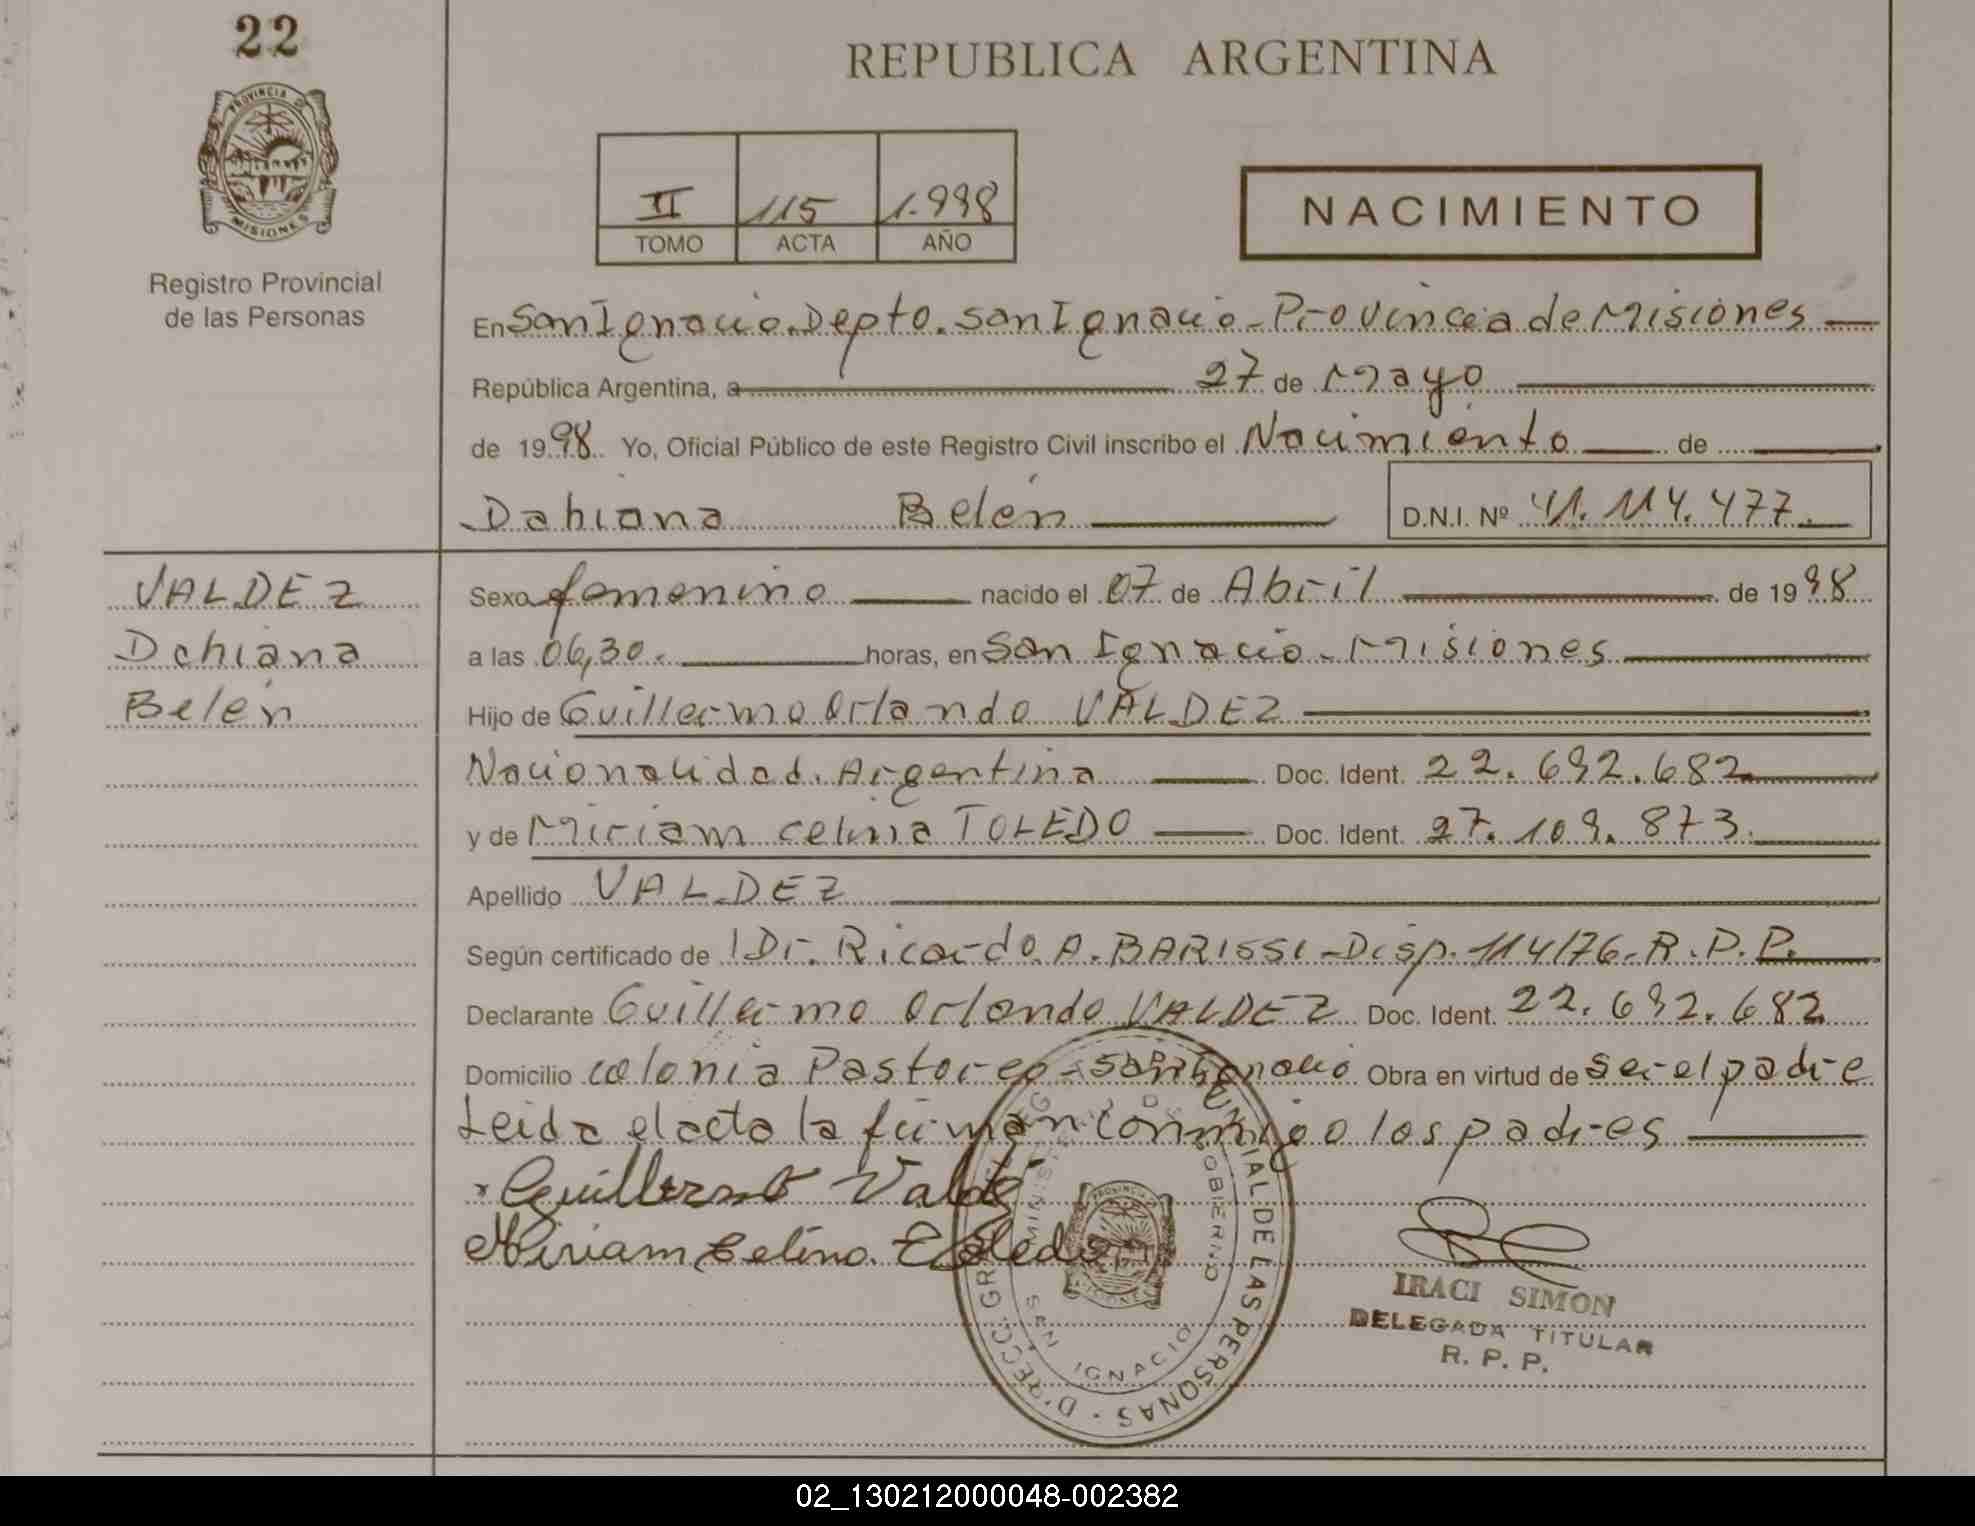 22
PROVINCIA DE
MISIONES
Registro Provincial
de las Personas
REPUBLICA ARGENTINA
II 115 1.998
TOMO ACTA AÑO
NACIMIENTO
En San Ignacio. Depto. San Ignacio - Provincia de Misiones
República Argentina, a 27 de Mayo
de 1998. Yo, Oficial Público de este Registro Civil inscribo el Nacimiento de
Dahiana Belén
D.N.I. Nº 41.114.477.
VALDEZ
Dahiana
Belén
Sexo femenino nacido el 07 de Abril de 1998
a las 06,30. horas, en San Ignacio - Misiones
Hijo de Guillermo Orlando VALDEZ
Nacionalidad. Argentina Doc. Ident. 22.692.682
y de Miriam Celina TOLEDO Doc. Ident. 27.109.873.
Apellido VALDEZ
Según certificado de Dr. Ricardo A. BARISSI - Disp. 114/76 - R.P.P.
Declarante Guillermo Orlando VALDEZ Doc. Ident. 22.692.682
Domicilio Colonia Pastoreo - San Ignacio Obra en virtud de Ser el padre
Leida el acta la firman conmigo los padres
Guillermo Valdez
Miriam Celina Toledo
MINISTERIO DE GOBIERNO
SAN IGNACIO
PROVINCIAL DE LAS PERSONAS
IRACI SIMON
DELEGADA TITULAR
R. P. P.
02_130212000048-002382